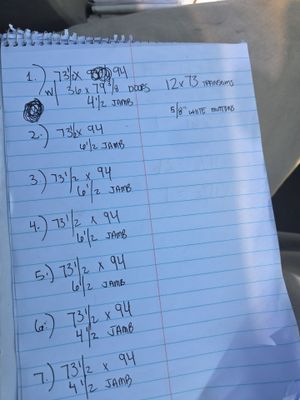 1.) 73 1/2 x 94
w/ 36 x 79 3/8 DOORS
4 1/2 JAMB
12 x 73 TRANSOMS
5/8" WHITE MUTTONS
2.) 73 1/2 x 94
6 1/2 JAMB
3.) 73 1/2 x 94
6 1/2 JAMB
4.) 73 1/2 x 94
6 1/2 JAMB
5.) 73 1/2 x 94
6 1/2 JAMB
6.) 73 1/2 x 94
4 1/2 JAMB
7.) 73 1/2 x 94
4 1/2 JAMB